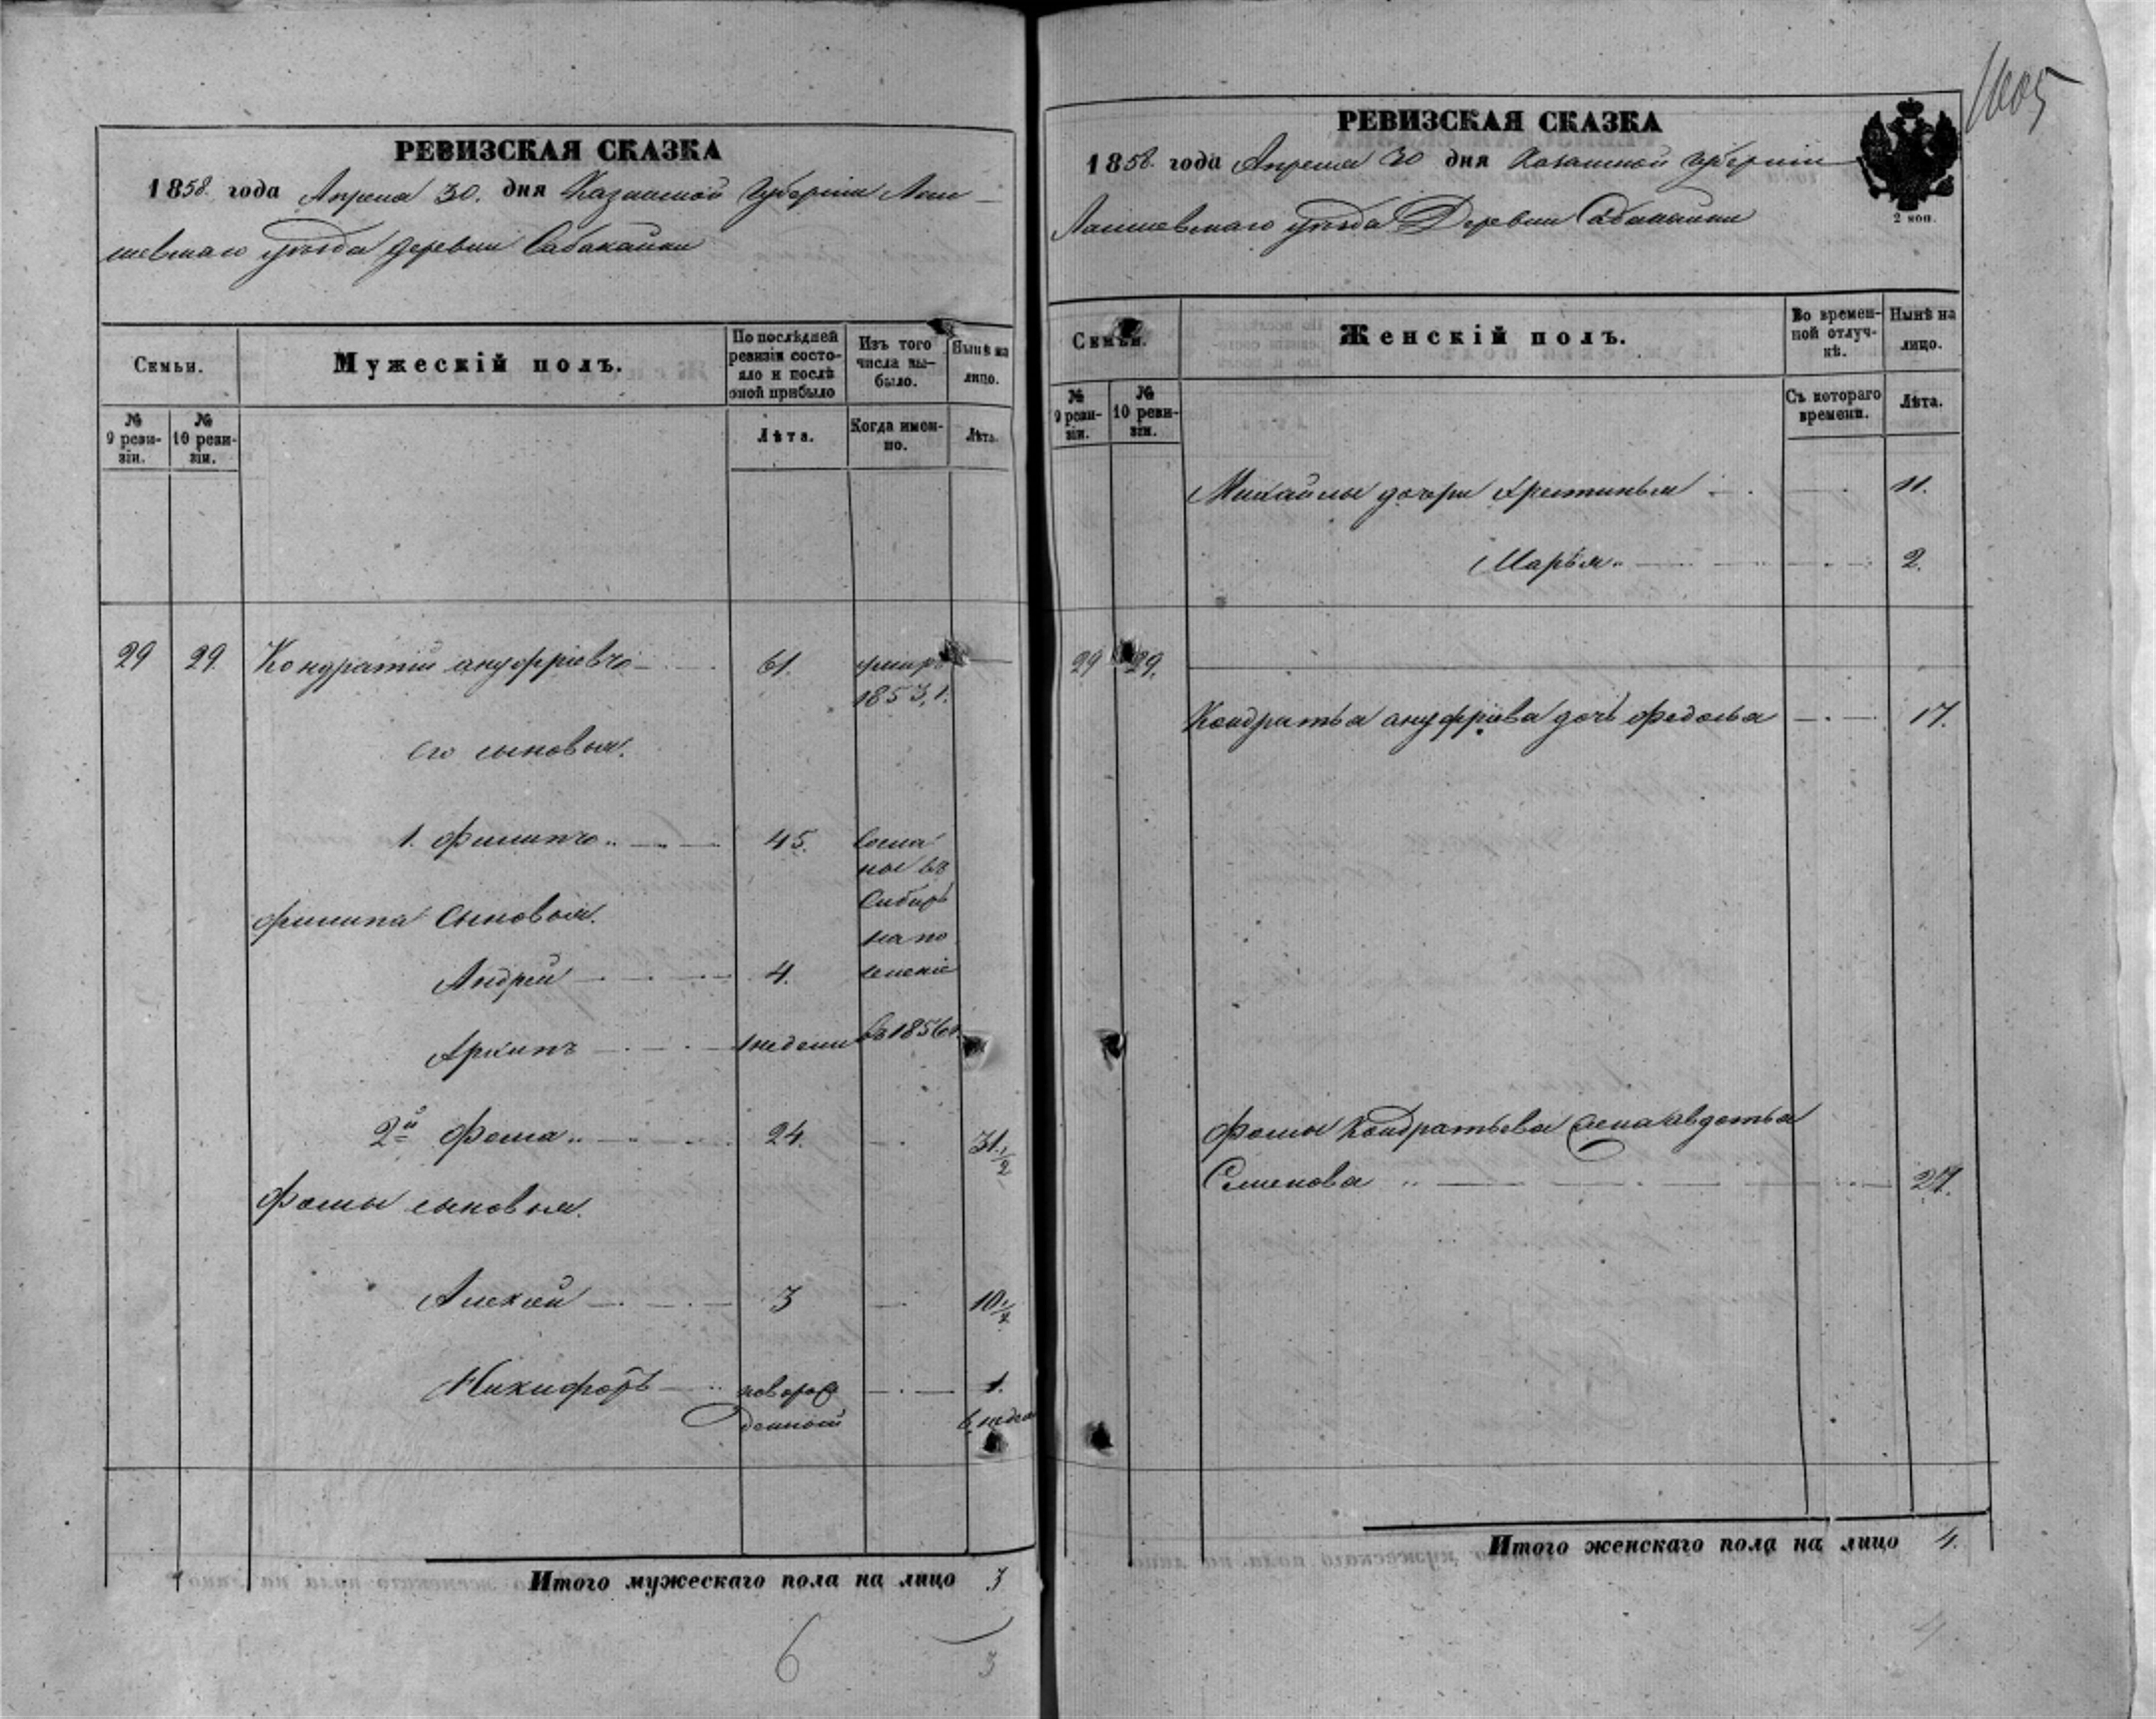 1005
РЕВИЗСКАЯ СКАЗКА
1858 года Апреля 30. дня Казанской Губерніи Лаи
шевскаго уѣзда деревни Сабакайки
Семьи.
№ 9 ревизіи.
№ 10 ревизіи.
Мужескій полъ.
По послѣдней ревизіи состояло и послѣ оной прибыло
Лѣта.
Изъ того числа выбыло.
Когда именно.
Нынѣ на лицо.
Лѣта.
29 29. Кондратій ануфріевъ 61. умеръ
1853 г.
его сыновья.
1. Филипъ 45. Сосла
ны въ
Сибирь
Филипа Сыновья.
на по
Андрей 4. селеніе
Архипъ 1 недели въ 1856 г.
2й Фома 24. 31 1/2
Фомы сыновья.
Алексей 3 10 1/2
Никифоръ новорож 1.
денный 6 недел
Итого мужескаго пола на лицо 3
6 3
РЕВИЗСКАЯ СКАЗКА
1858 года Апреля 30 дня Казанской Губерніи
Лаишевскаго уѣзда Деревни Сабакайки
2 коп.
Семьи.
№ 9 ревизіи.
№ 10 ревизіи.
Женскій полъ.
Во временной отлучкѣ.
Съ котораго времени.
Нынѣ на лицо.
Лѣта.
Михайлы дочери Крестинья 11.
Марья 2.
29 29.
Кондратья ануфріева дочь Федосья 17.
Фомы Кондратьева жена авдотья
Семенова 27.
Итого женскаго пола на лицо 4.
4